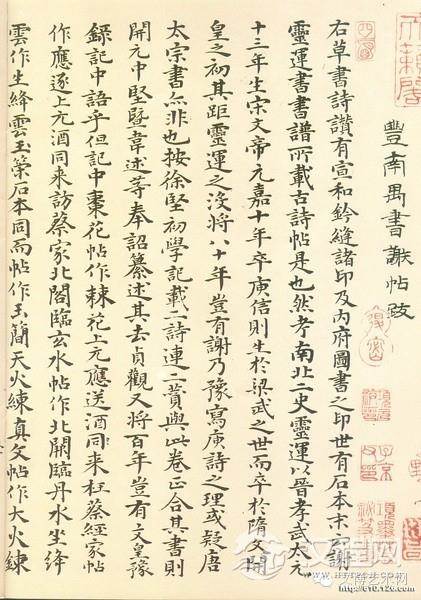 豐南禺書謝帖跋
右草書詩讚有宣和鈐縫諸印及內府圖書之印世有石本末云謝
靈運書書譜所載古詩帖是也然考南北二史靈運以晉孝武太元
十三年生宋文帝元嘉十年卒庾信則生於梁武之世而卒於隋文開
皇之初其距靈運之沒將八十年豈有謝乃豫寫庾詩之理或疑唐
太宗書亦非也按徐堅初學記載二詩連二贊與此卷正合其書則
開元中堅暨韋述等奉詔纂述其去貞觀又將百年豈有文皇豫
錄記中語乎但記中棗花帖作棘花上元應送酒同来枉蔡經家帖
作應逐上元酒同来訪蔡家北閣臨玄水帖作北闕臨丹水坐絳
雲作生絳雲玉策石本同而帖作玉簡天火練真文帖作大火鍊
天籟閣
http://610.126.com